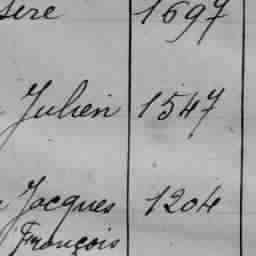 sère 1697
Julien 1547
Jacques 1204
François